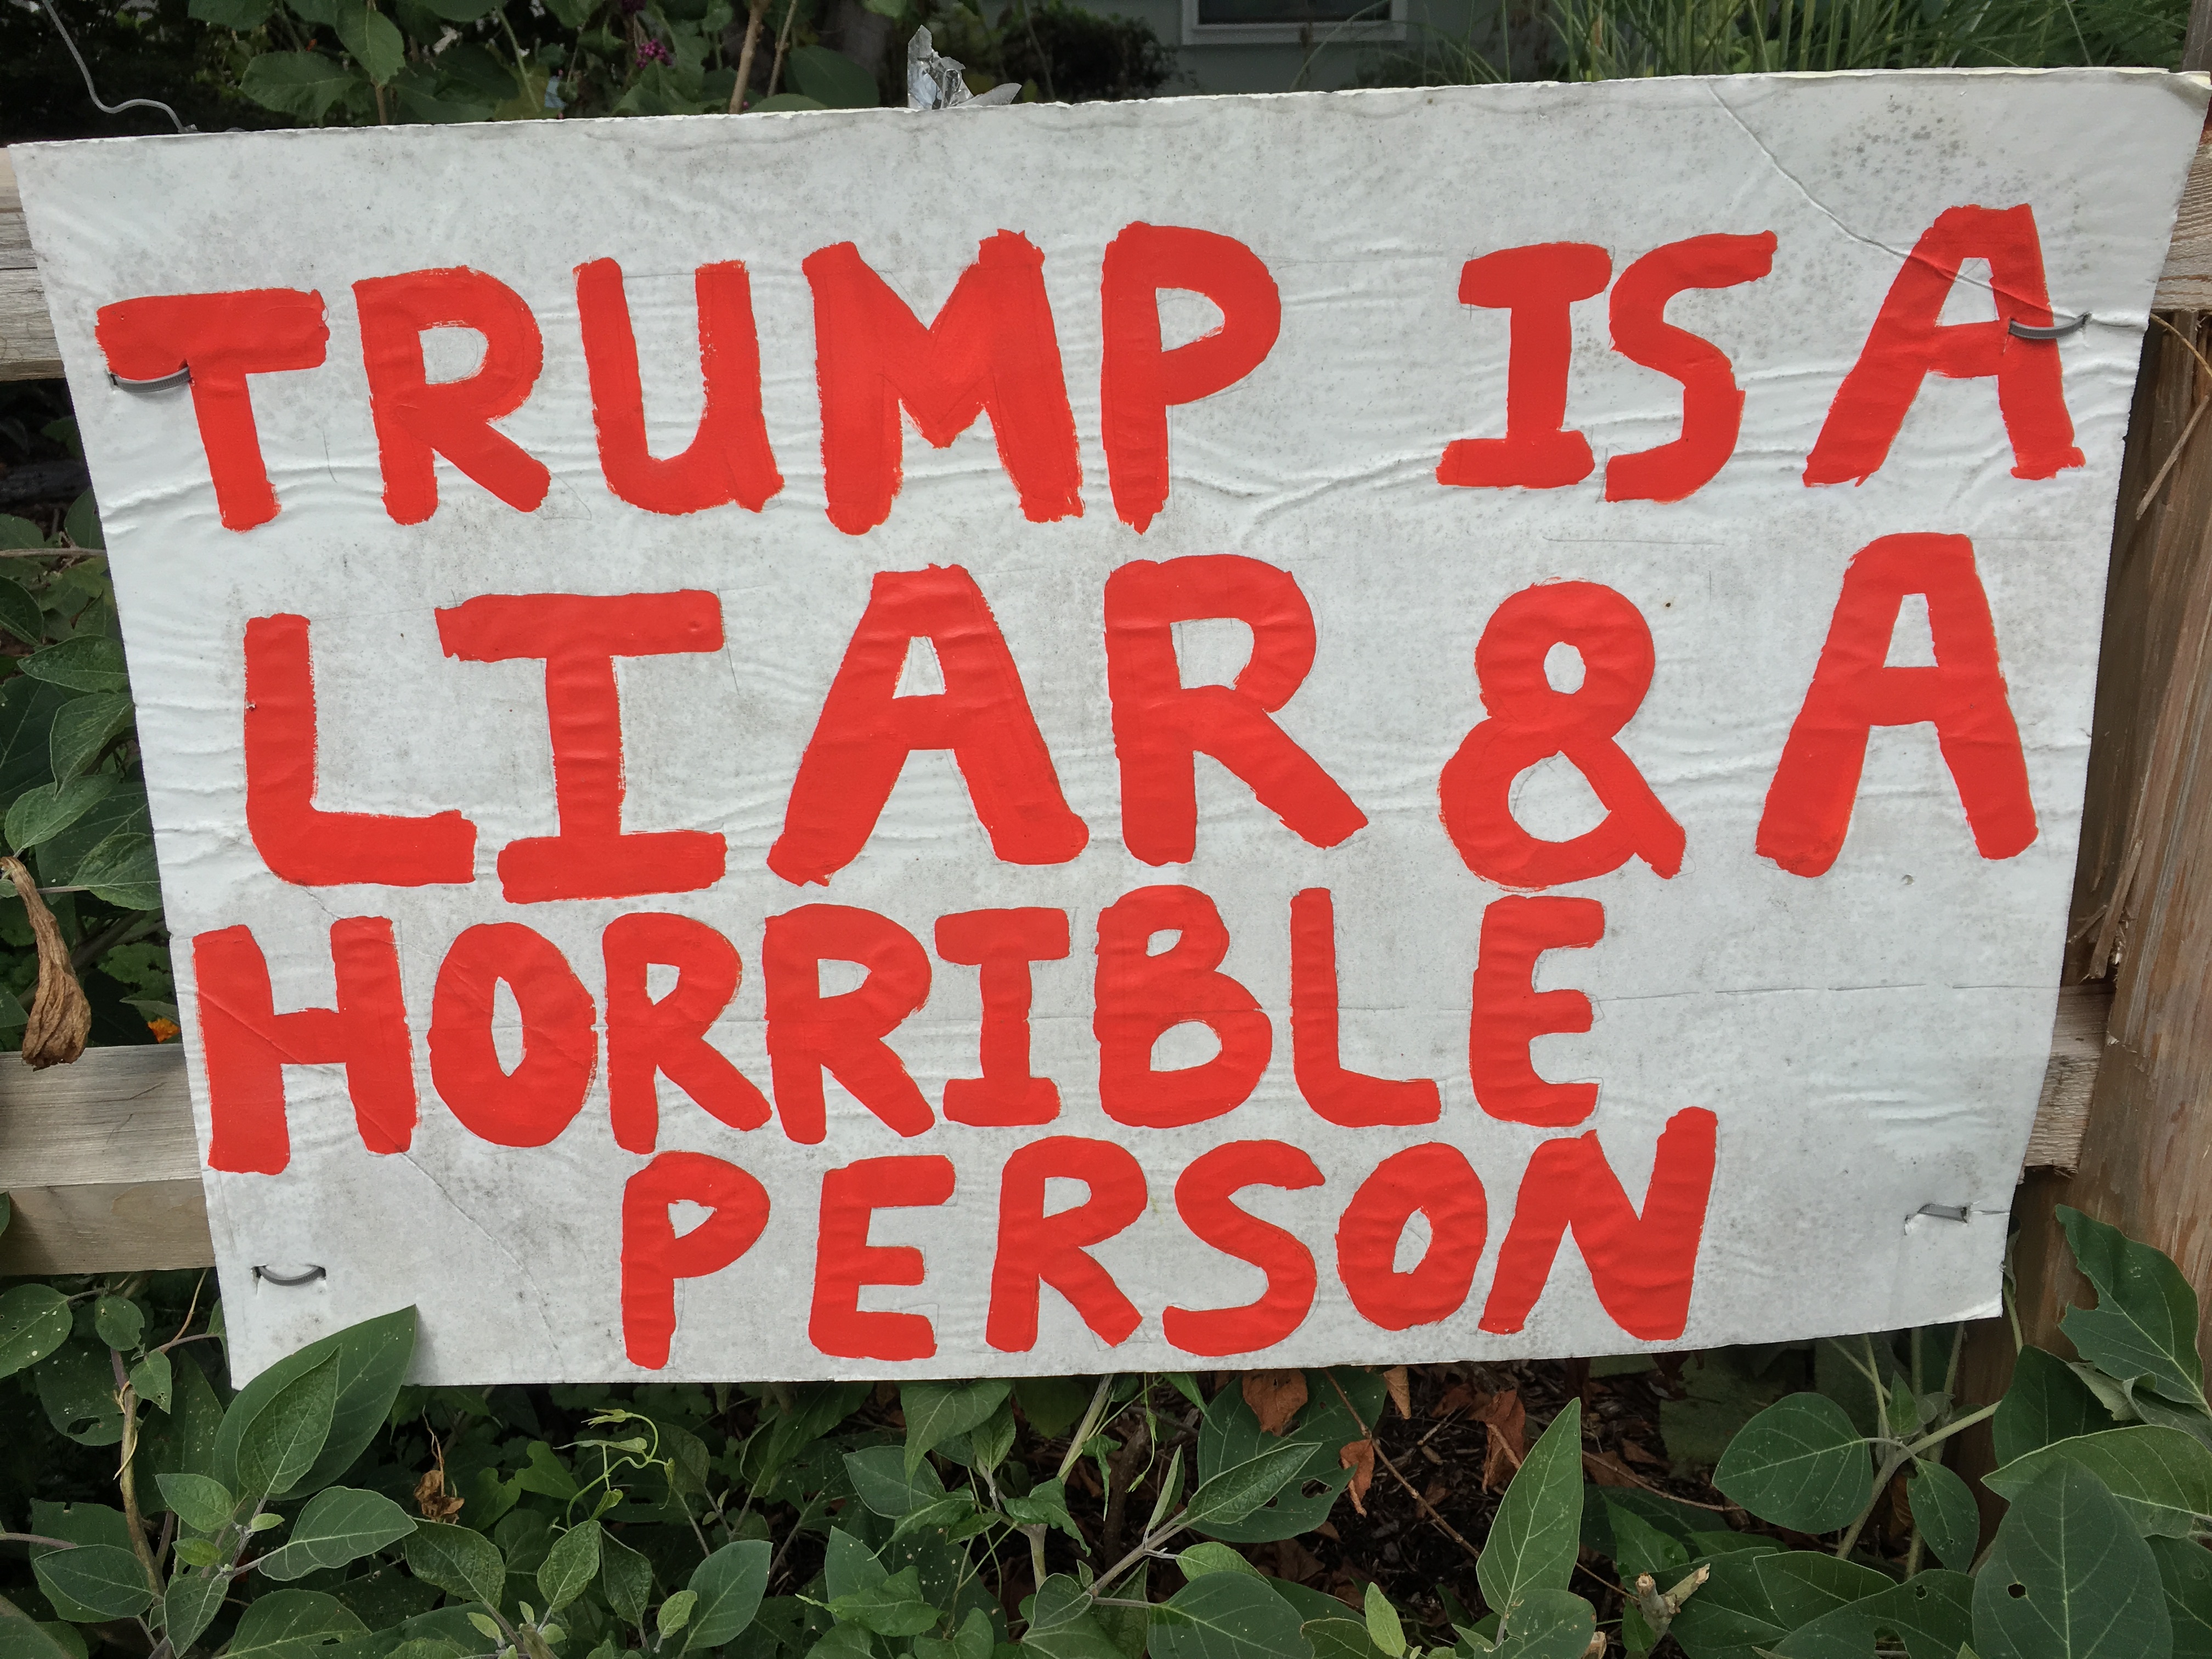 TRUMP IS A
LIAR & A
HORRIBLE
PERSON